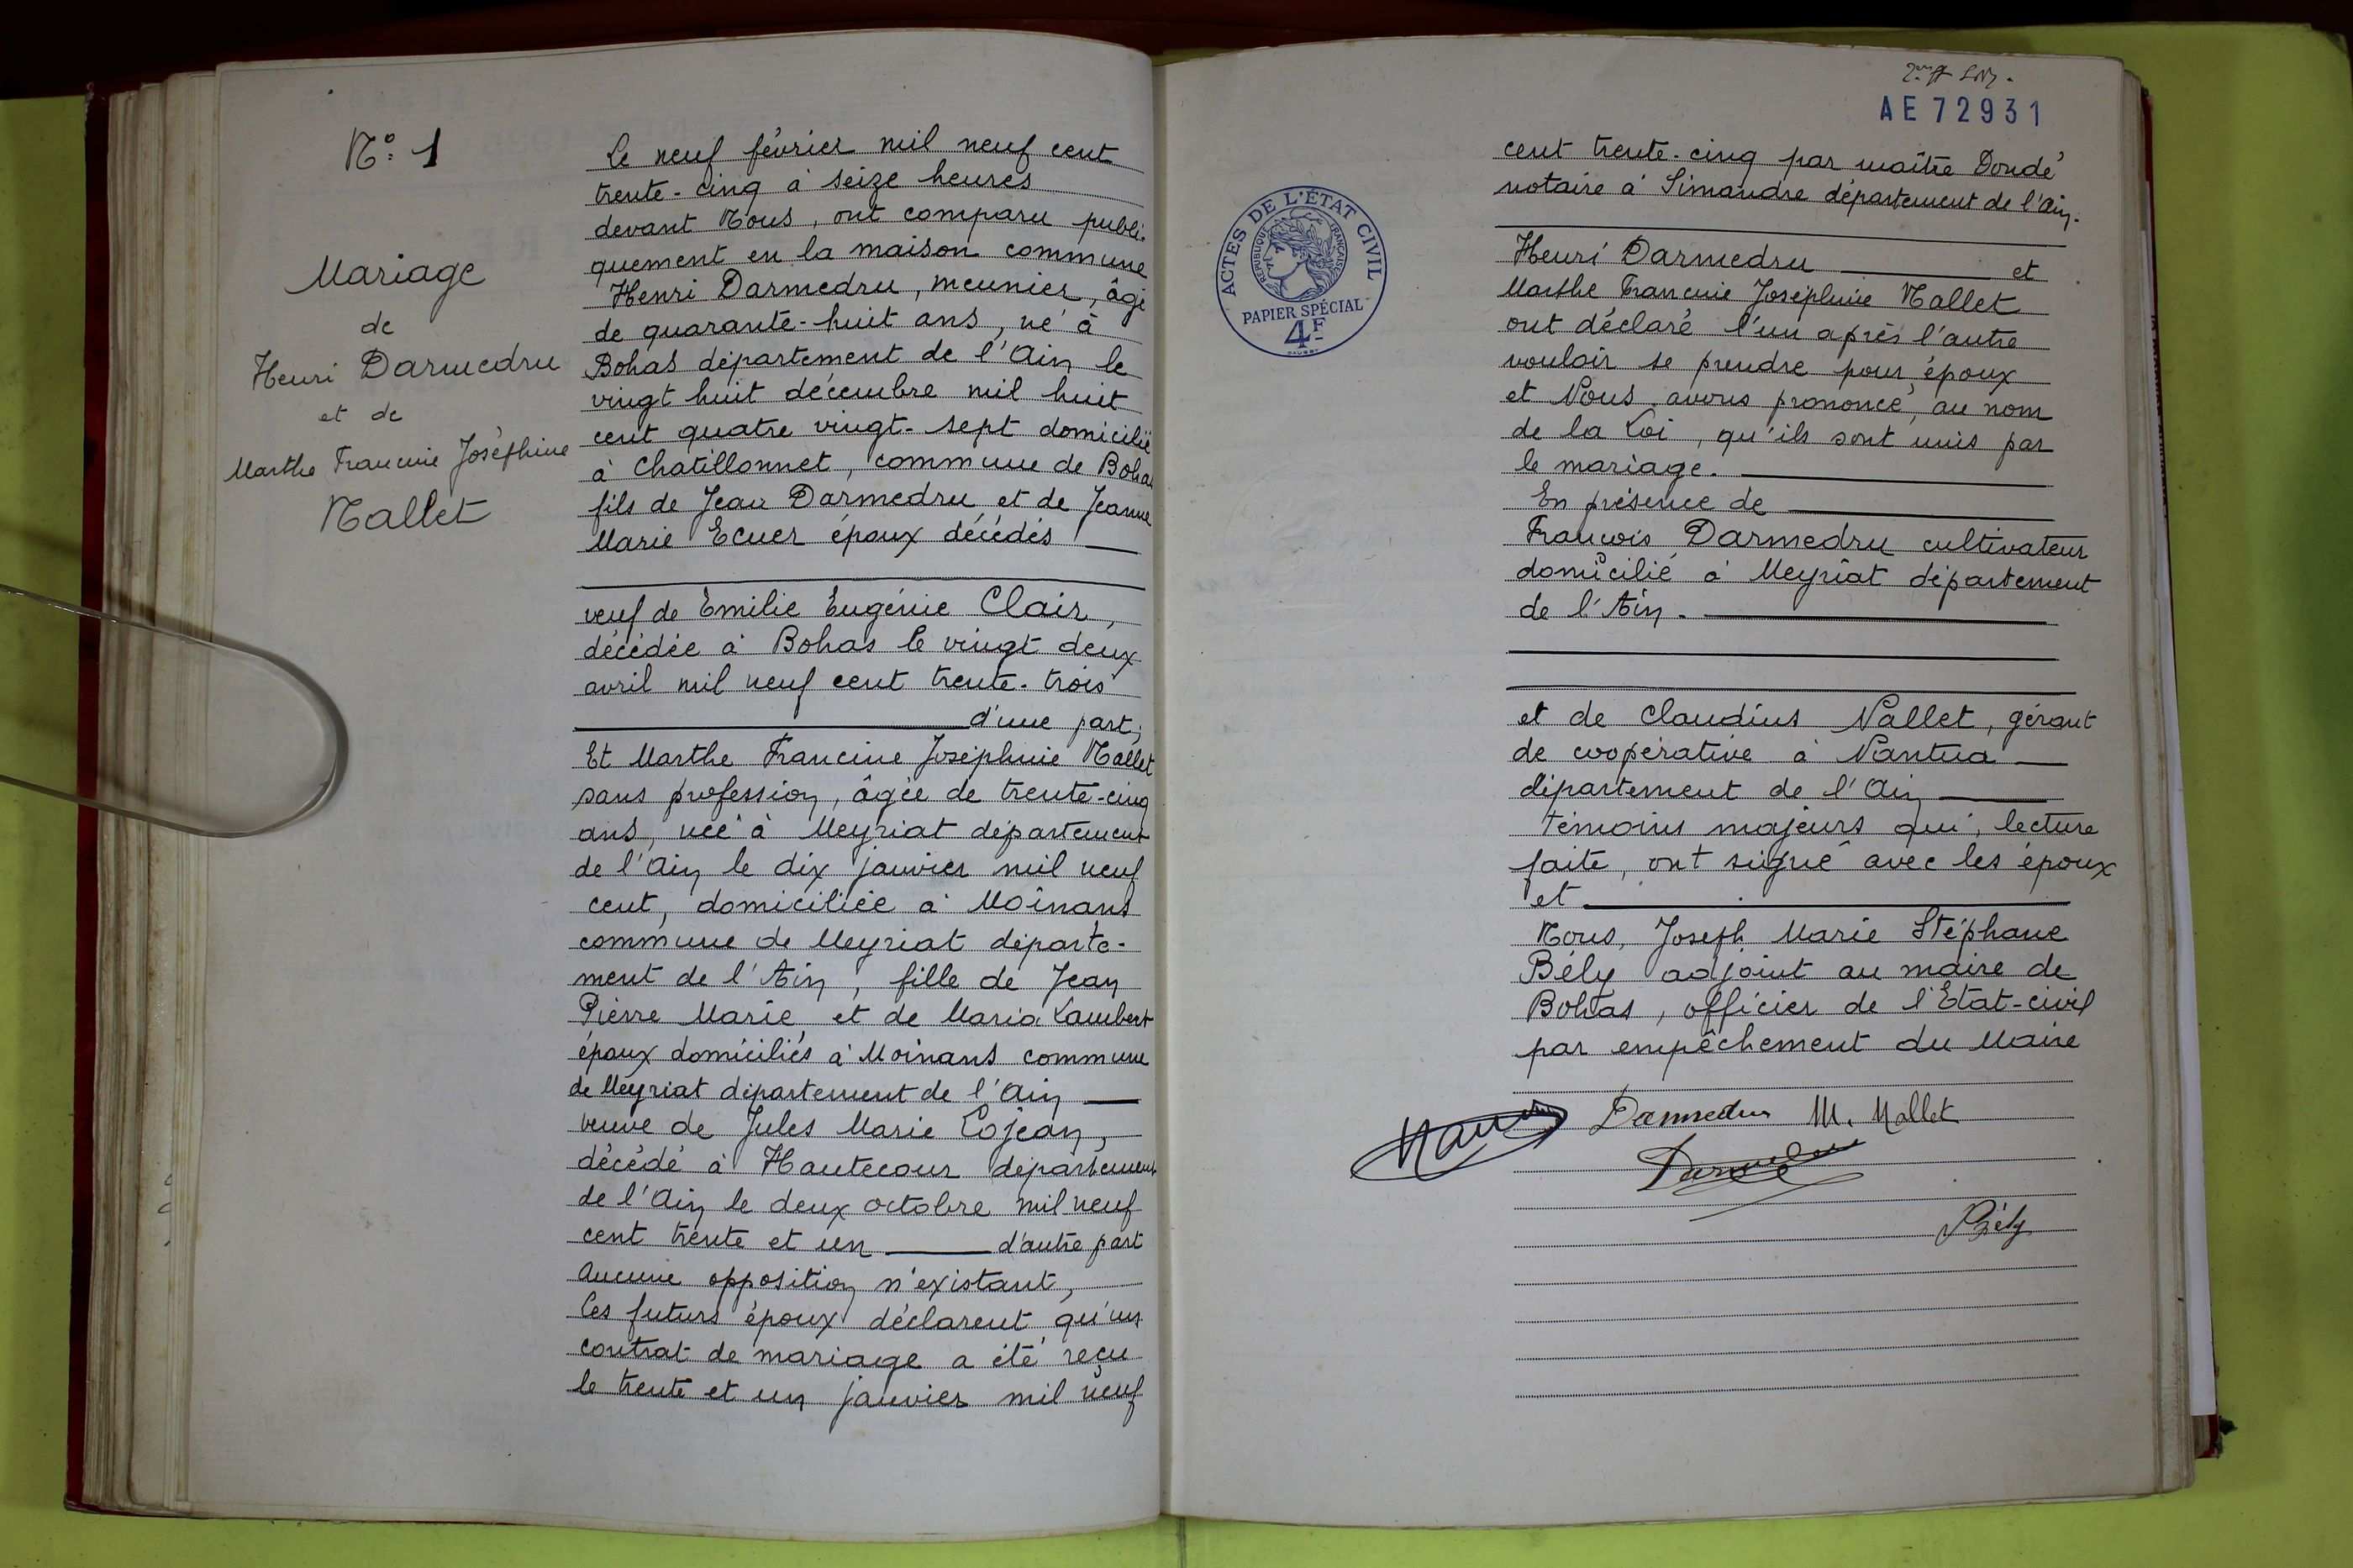 N° 1
Mariage
de
Henri Darmedru
et de
Marthe Francine Joséphine
Nallet
Le neuf février mil neuf cent
trente-cinq à seize heures
devant Nous, ont comparu publi-
quement en la maison commune
Henri Darmedru, meunier, âgé
de quarante-huit ans, né à
Bohas département de l'Ain le
vingt huit décembre mil huit
cent quatre vingt-sept domicilié
à Chatillonnet, commune de Bohas
fils de Jean Darmedru et de Jeanne
Marie Ecuer époux décédés
veuf de Emilie Eugénie Clair,
décédée à Bohas le vingt deux
avril mil neuf cent trente-trois
d'une part,
Et Marthe Francine Joséphine Nallet
sans profession, âgée de trente-cinq
ans, née à Meyriat département
de l'Ain le dix janvier mil neuf
cent, domiciliée à Moinans
commune de Meyriat départe-
ment de l'Ain, fille de Jean
Pierre Marie et de Maria Lambert
époux domiciliés à Moinans commune
de Meyriat département de l'Ain
veuve de Jules Marie Cojean,
décédé à Hautecour département
de l'Ain le deux octobre mil neuf
cent trente et un d'autre part
Aucune opposition n'existant,
Les futurs époux déclarent qu'un
contrat de mariage a été reçu
le trente et un janvier mil neuf
AE 72931
ACTES DE L'ÉTAT CIVIL
RÉPUBLIQUE FRANÇAISE
PAPIER SPÉCIAL
4F
cent trente-cinq par maître Dondé
notaire à Simandre département de l'Ain.
Henri Darmedru et
Marthe Francine Joséphine Nallet
ont déclaré l'un après l'autre
vouloir se prendre pour époux
et Nous avons prononcé, au nom
de la Loi, qu'ils sont unis par
le mariage.
En présence de
François Darmedru cultivateur
domicilié à Meyriat département
de l'Ain.
et de Claudius Nallet, gérant
de coopérative à Nantua
département de l'Ain
témoins majeurs qui, lecture
faite, ont signé avec les époux
et
Nous, Joseph Marie Stéphane
Bély adjoint au maire de
Bohas, officier de l'Etat-civil
par empêchement du Maire
Darmedru M. Nallet
Darmedru
Bély